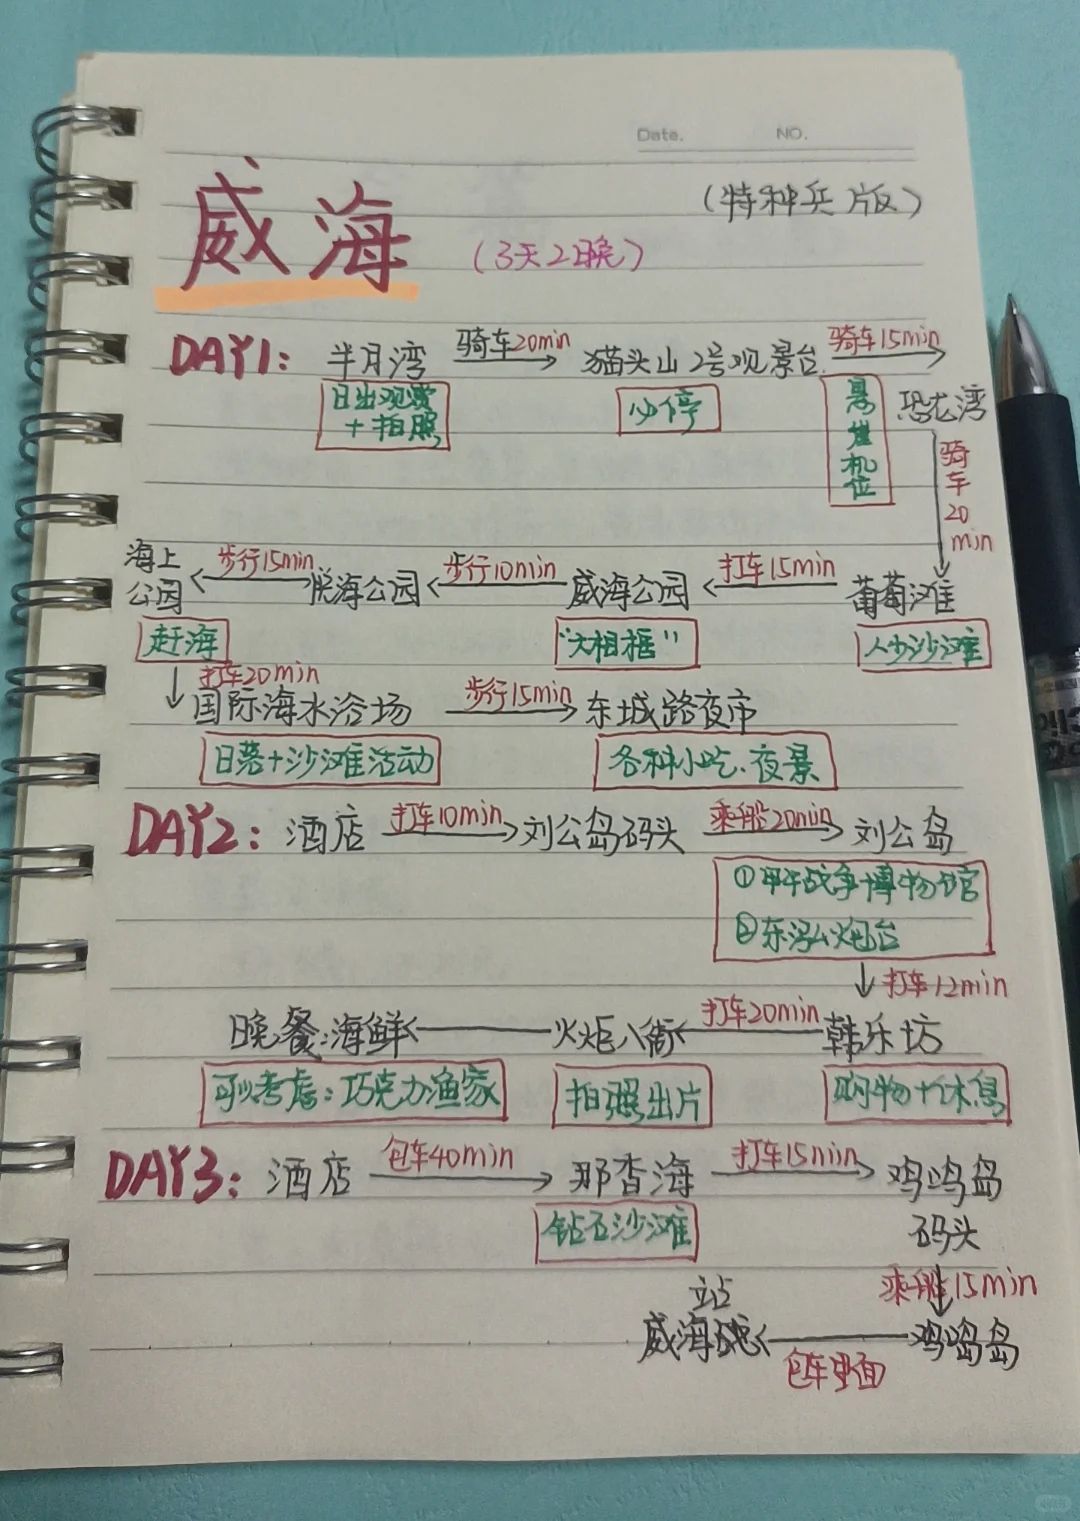 Date. NO.
威海 (3天2晚) (特种兵版)
DAY1: 半月湾 骑车20min 猫头山2号观景台 骑车15min
日出观赏+拍照 必停 悬崖机位 恐龙湾
骑车20min
海上公园 步行15min 悦海公园 步行10min 威海公园 打车15min 葡萄滩
赶海 "大相框" 人少沙滩
打车20min
国际海水浴场 步行15min 东城路夜市
日落+沙滩活动 各种小吃、夜景
DAY2: 酒店 打车10min 刘公岛码头 乘船20min 刘公岛
①甲午战争博物馆
②东泓炮台
打车12min
晚餐:海鲜 火炬八街 打车20min 韩乐坊
可以考虑:巧克力渔家 拍照出片 购物+休息
DAY3: 酒店 包车40min 那香海 打车15min 鸡鸣岛
钻石沙滩 码头
乘船15min
站
威海 鸡鸣岛
包车